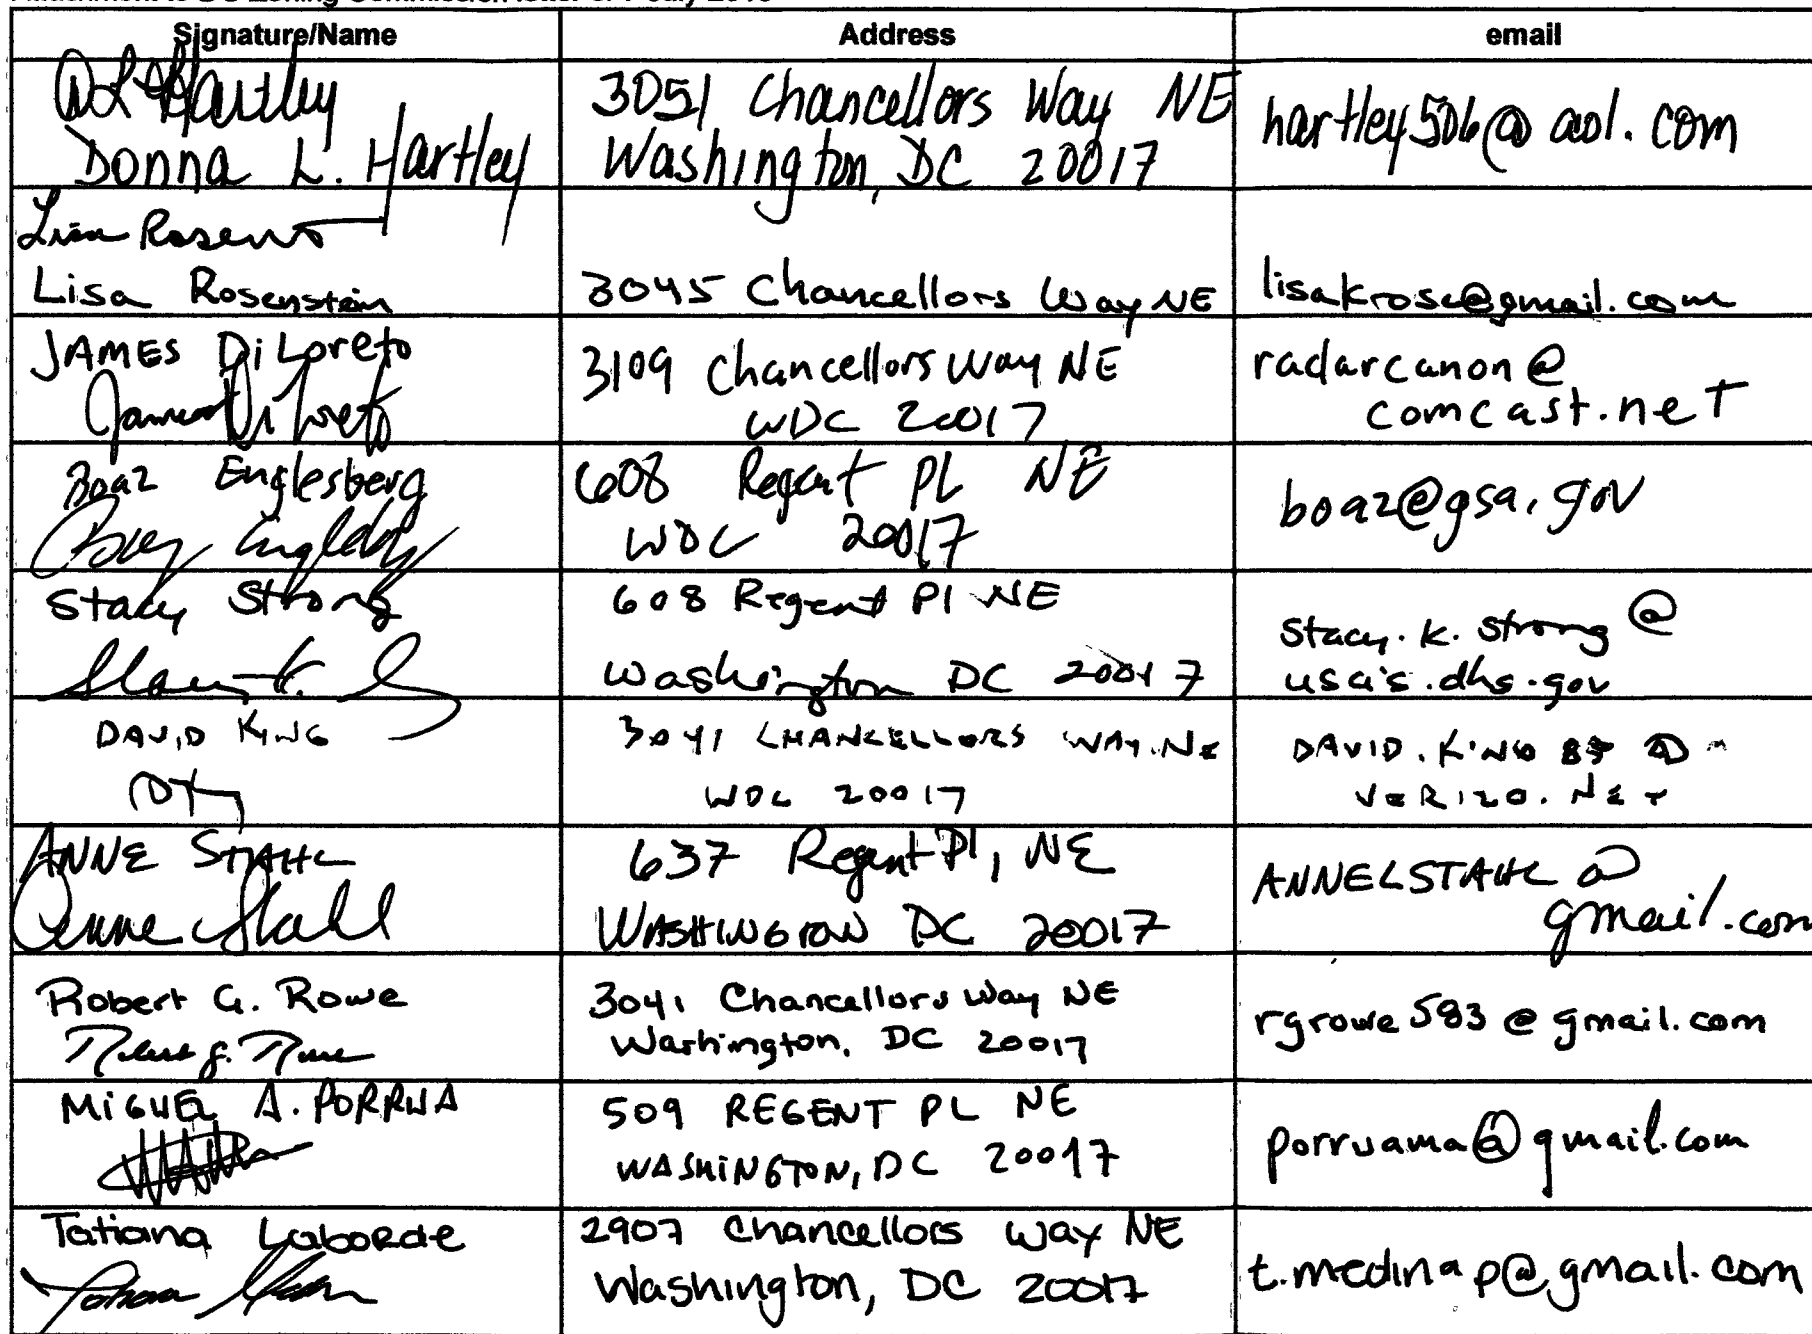 Signature/Name Address email
Donna L. Hartley
3051 Chancellors Way NE
Washington, DC 20017
hartley506@aol.com
Lisa Rosenstein
3045 Chancellors Way NE
lisakrose@gmail.com
JAMES DiLoreto
James DiLoreto
3109 Chancellors Way NE
WDC 20017
radarcanon@
comcast.net
Boaz Englesberg
608 Regent PL NE
WDC 20017
boaz@gsa.gov
Stacy Strong
608 Regent Pl NE
Washington DC 20017
stacy.k.strong@
uscis.dhs.gov
DAVID KING
3041 CHANCELLORS WAY.NE
WDC 20017
VERIZO.NET
ANNE STAHL
Anne Stahl
637 Regent Pl, NE
WASHINGTON DC 20017
ANNELSTAHL@
gmail.com
Robert G. Rowe
3041 Chancellors Way NE
Washington, DC 20017
rgrowe583@gmail.com
MIGUEL A. PORRUA
509 REGENT PL NE
WASHINGTON, DC 20017
porruama@gmail.com
Tatiana Laborde
2907 Chancellors Way NE
Washington, DC 20017
t.medinap@gmail.com